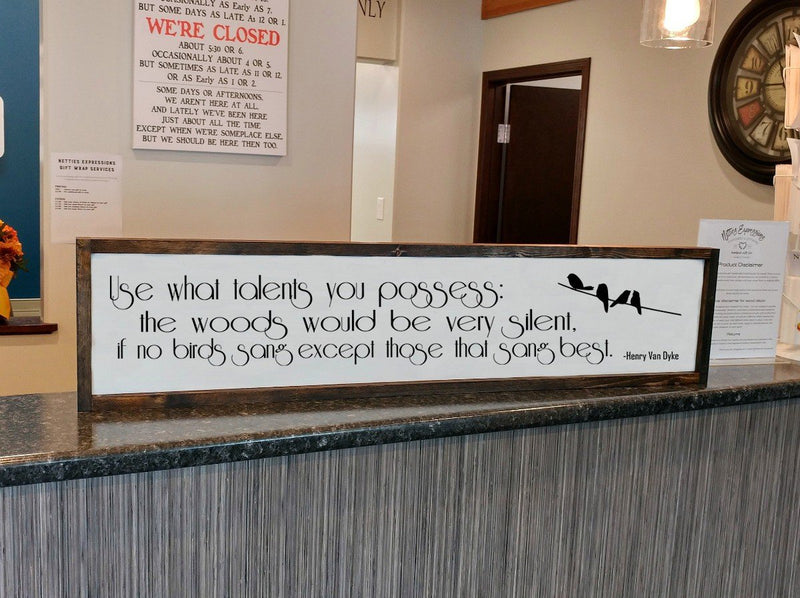 OCCASIONALLY AS Early AS 7.
BUT SOME DAYS AS LATE As 12 OR 1.
WE'RE CLOSED
ABOUT 5:30 OR 6.
OCCASIONALLY ABOUT 4 OR 5.
BUT SOMETIMES AS LATE AS 11 OR 12,
OR AS Early AS 1 OR 2.
SOME DAYS OR AFTERNOONS,
WE AREN'T HERE AT ALL,
AND LATELY WE'VE BEEN HERE
JUST ABOUT ALL THE TIME
EXCEPT WHEN WE'RE SOMEPLACE ELSE,
BUT WE SHOULD BE HERE THEN TOO.
NLY
NETTIES EXPRESSIONS
GIFT WRAP SERVICES
Use what talents you possess:
the woods would be very silent,
if no birds sang except those that sang best.
-Henry Van Dyke
Netties Expressions
Product Disclaimer
Returns